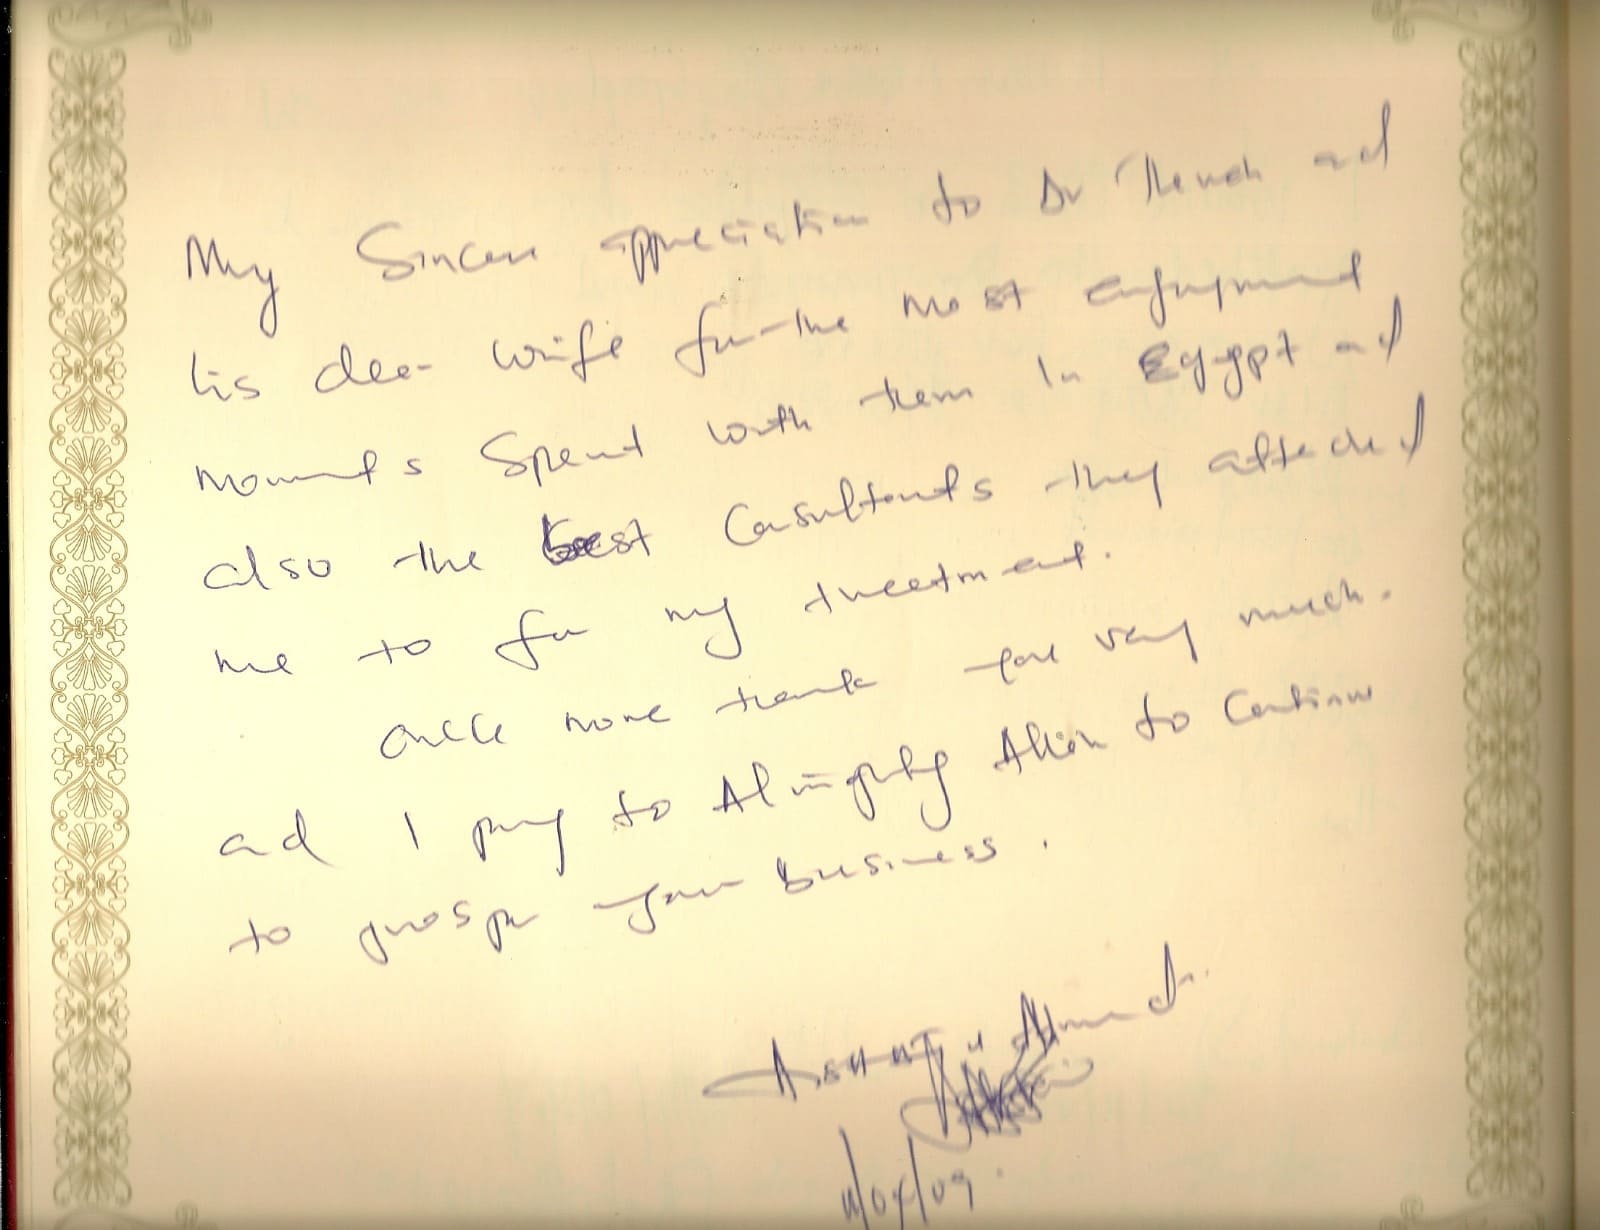 My Sincere appreciation to Dr and
his dear wife for the most enjoyment
moments Spent with them In Egypt and
also the best Consultants they attached
me to for my treetment.
Once more thank you very much.
and I pray to Almighty Allah to Continue
to prosper your business.
Ahmed.
09.